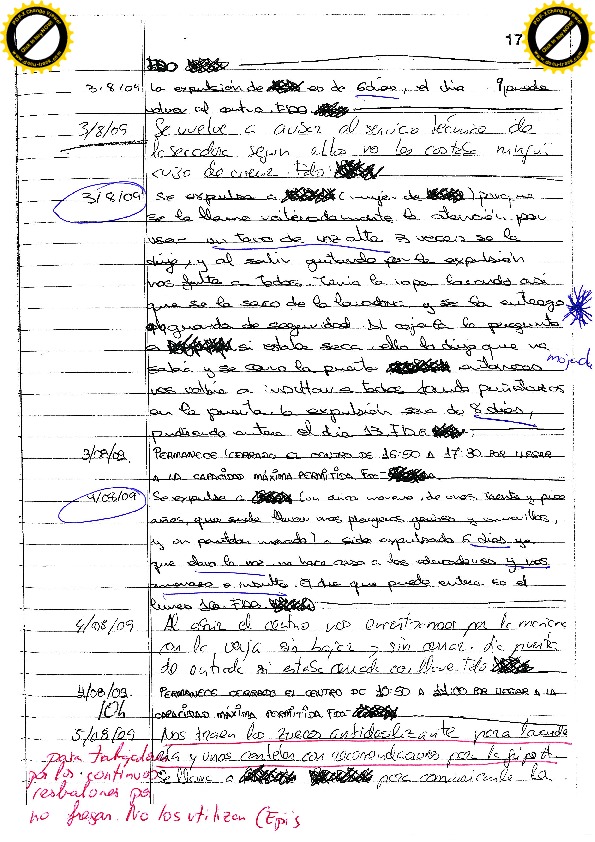 17
FDO
3/8/09 La expulsión de es de 6 días, el día 9 puede
volver al centro. FDO
3/8/09 Se vuelve a avisar al servicio técnico de
la secadora según ellos no les costaba ningún
Fdo:
3/8/09 Se expulsa a (mujer de ) porque
se le llama reiteradamente la atención por
usar un tono de voz alto 3 veces se le
dije, y al salir gritando por la expulsión
nos falta a todos. Tenía la ropa lavando así
que se la saco de la lavadora y se la entrego
al guarda de seguridad. Al cogerla le pregunta
a si estaba seca, ella le dijo que no
sabía y se cerró la puerta entonces
mojada
nos volvió a insultar a todos dando puñetazos
en la puerta la expulsión será de 8 días,
pudiendo entrar el día 13 FDO
3/08/09 PERMANECE CERRADO EL CENTRO DE 16:50 A 17:30 POR LLEGAR
A LA CAPACIDAD MÁXIMA PERMITIDA FDO-
4/08/09 Se expulsa a (un chico moreno, de unos treinta y pico
años, que suele llevar unos y amarillos,
y un pantalón ) a sido expulsado 6 días ya
que eleva la voz, no hace caso a los educadores y nos
amenaza e insulta. El día que puede entrar es el
lunes 10 FDO
4/08/09 Al abrir el centro nos encontramos por la mañana
con la verja sin bajar y sin cerrar. La puerta
de entrada si estaba cerrada con llave Fdo
4/08/09 PERMANECE CERRADO EL CENTRO DE 10:50 A 11:00 POR LLEGAR A LA
10h CAPACIDAD MÁXIMA PERMITIDA FDO-
5/08/09 Nos traen los zuecos antideslizante para
para trabajadores y unos carteles con recomendaciones para la gripe A
por los continuos Se llama a para comunicarle la
resbalones por
no fregar. No los utilizan (Epis